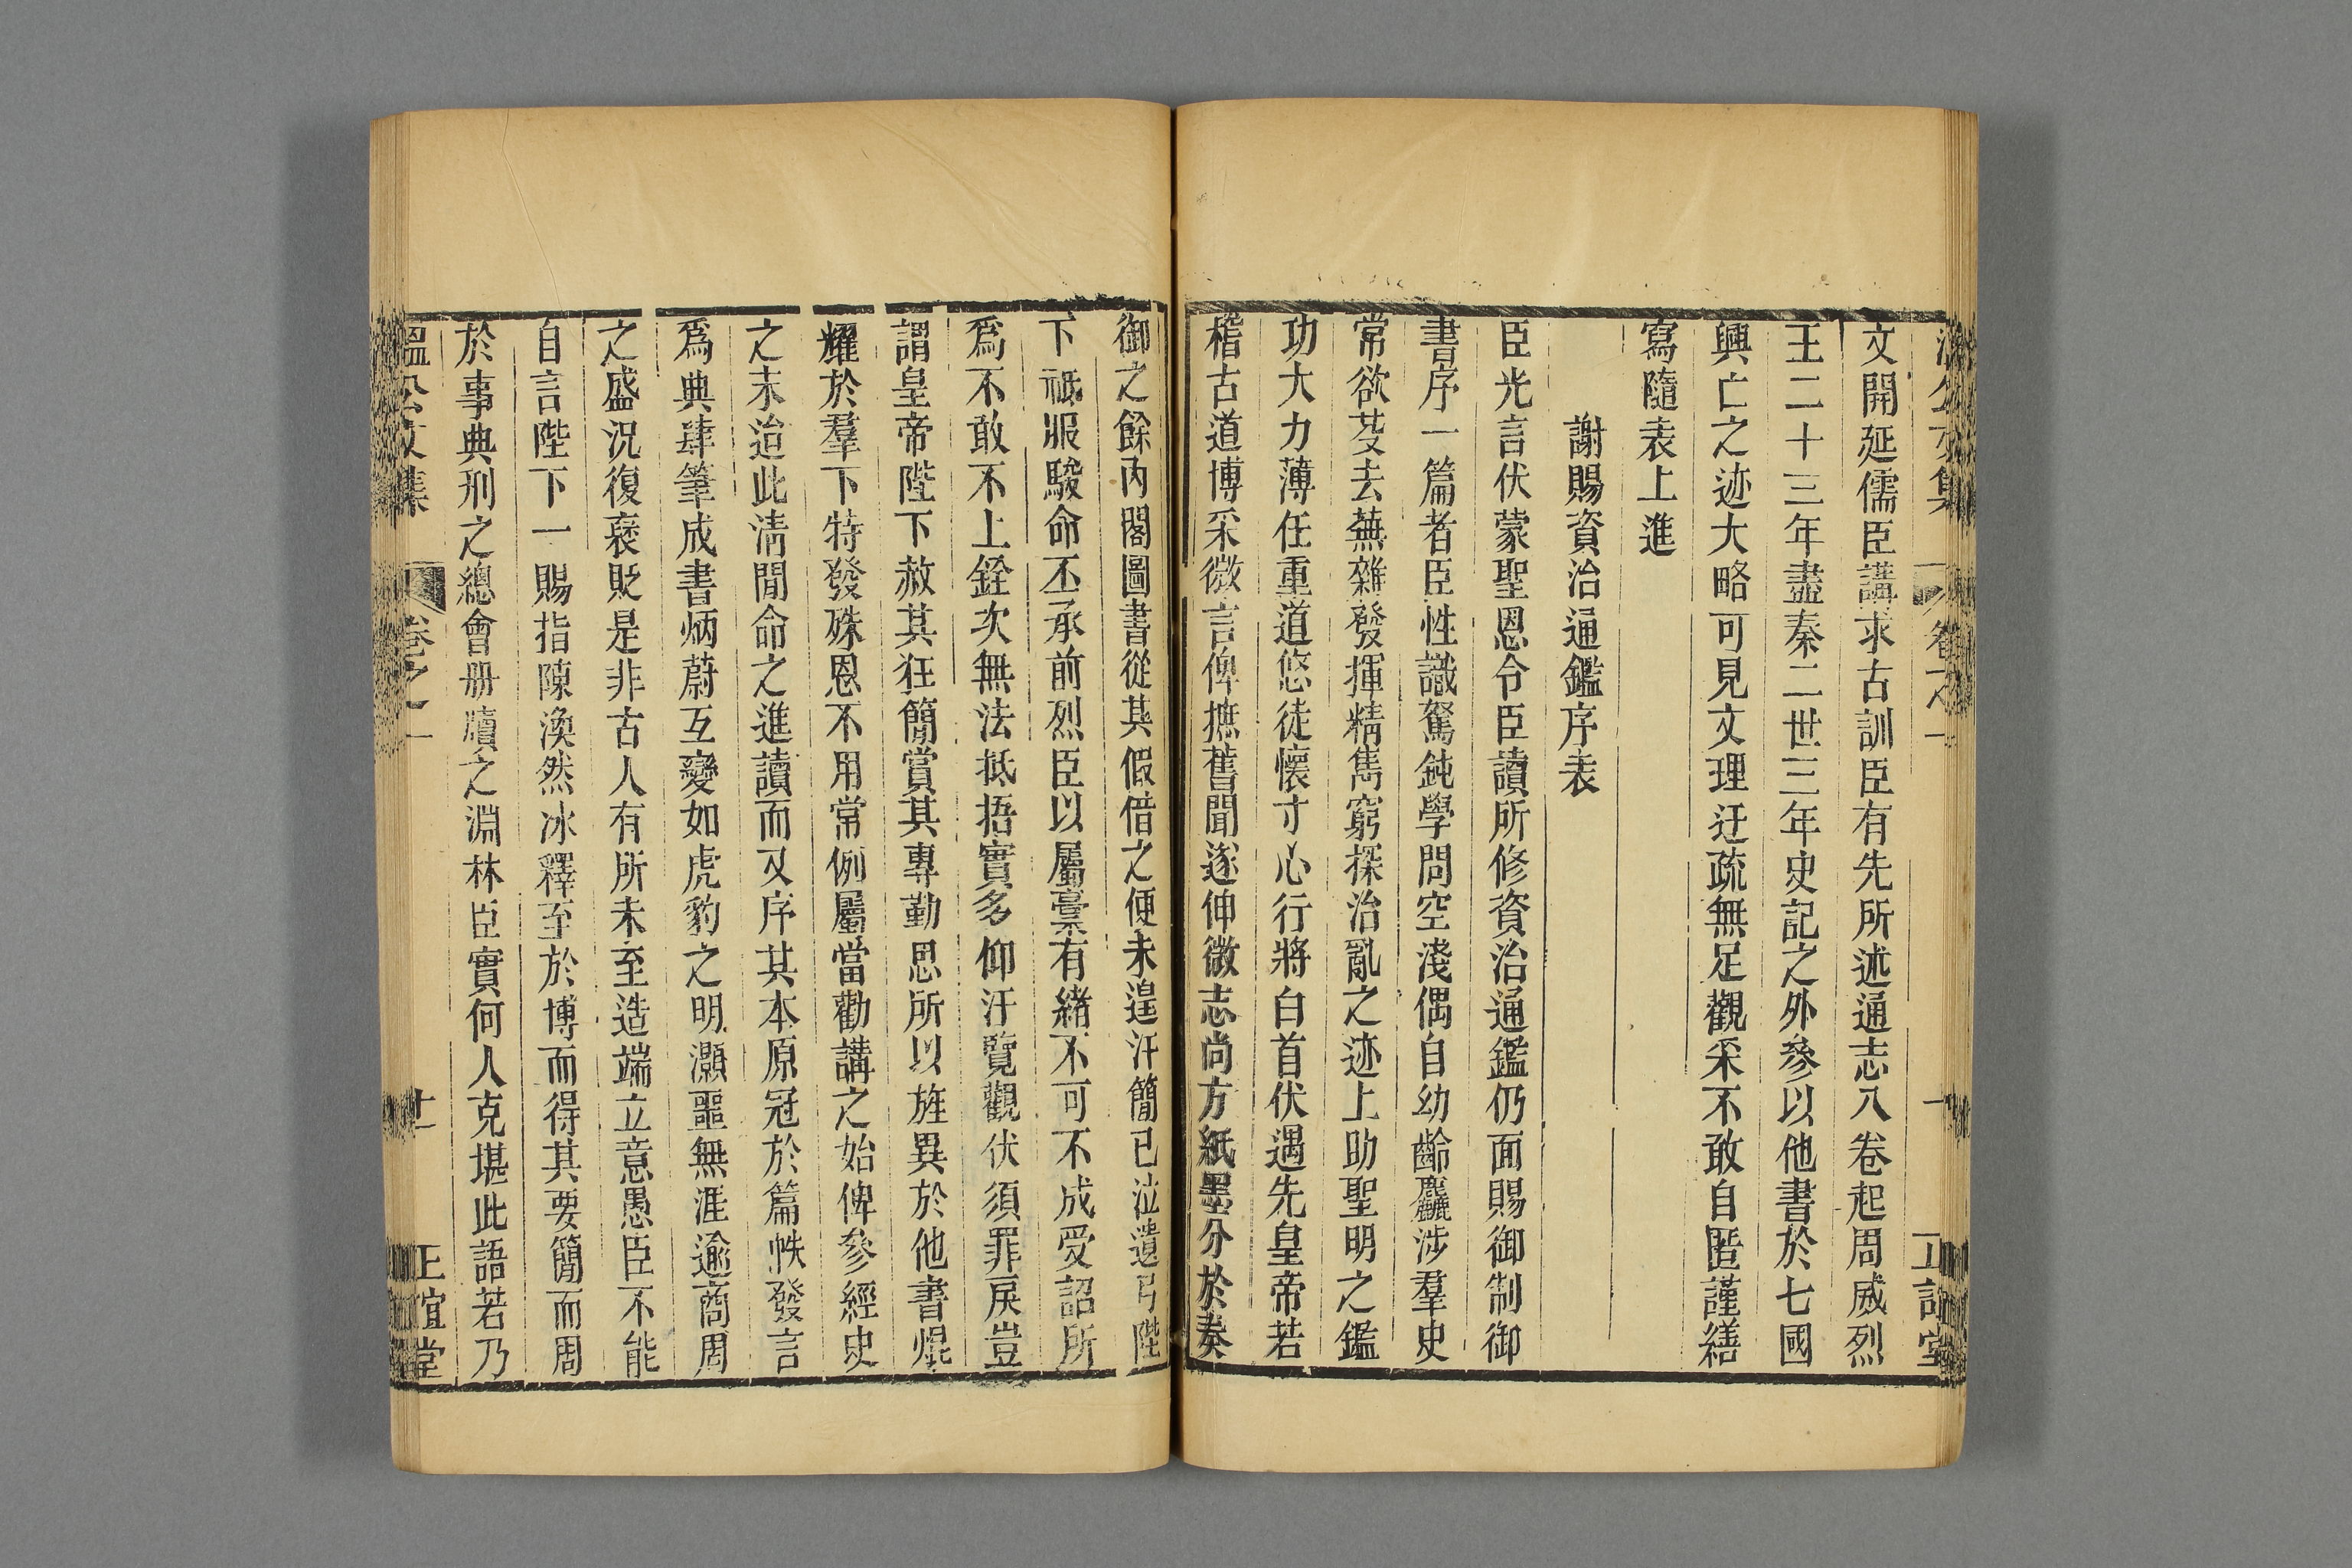 文開延儒臣講求古訓臣有先所述通志八卷起周威烈
王二十三年盡秦二世三年史記之外參以他書於七國
興亡之迹大略可見文理迂疏無足觀采不敢自匿謹繕
寫隨表上進
謝賜資治通鑑序表
臣光言伏蒙聖恩令臣讀所修資治通鑑仍面賜御制御
書序一篇者臣性識駑鈍學問空淺偶自幼齡麤涉羣史
常欲芟去蕪雜發揮精雋窮探治亂之迹上助聖明之鑑
功大力薄任重道悠徒懷寸心行將白首伏遇先皇帝若
稽古道博采微言俾摭舊聞遂伸微志尚方紙墨分於奏
御之餘內閣圖書從其假借之便未遑汗簡已泣遺弓陛
下祗服駿命丕承前烈臣以屬槀有緒不可不成受詔所
爲不敢不上銓次無法抵捂實多仰汙覽觀伏須罪戾豈
謂皇帝陛下赦其狂簡賞其專勤思所以旌異於他書焜
耀於羣下特發殊恩不用常例屬當勸講之始俾參經史
之末迨此淸閒命之進讀而又序其本原冠於篇帙發言
爲典肆筆成書炳蔚互變如虎豹之明灝噩無涯逾商周
之盛況復褒貶是非古人有所未至造端立意愚臣不能
自言陛下一賜指陳渙然冰釋至於博而得其要簡而周
於事典刑之總會册牘之淵林臣實何人克堪此語若乃
溫公文集 卷之一 十一 正誼堂